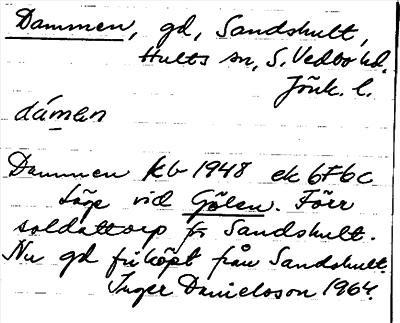 Dammen, gd, Sandshult,
Hults sn, S. Vedbo hd.
Jönk. l.
dámen
Dammen kb 1948 ek 6F6c
Läge vid Gölen. Förr
soldattorp fr Sandshult.
Nu gd friköpt från Sandshult.
Inger Danielsson 1964.